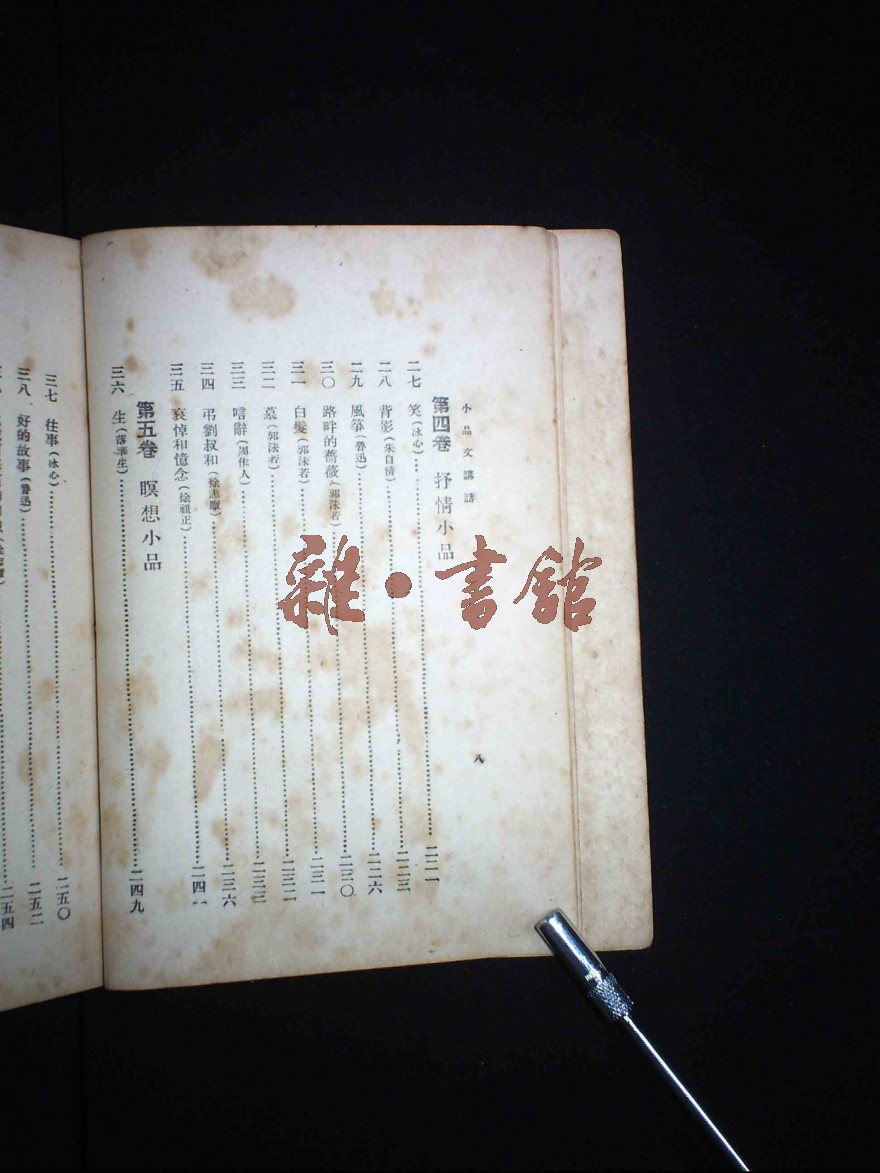 小品文講話
八
第四卷 抒情小品
二七 笑(冰心)……二二一
二八 背影(朱自清)……二二三
二九 風箏(魯迅)……二二六
三〇 路畔的薔薇(郭沫若)……二三〇
三一 白髮(郭沫若)……二三一
三二 墓(郭沫若)……二三二
三三 唁辭(周作人)……二三三
三四 弔劉叔和(徐志摩)……二三六
三五 哀悼和憶念(徐祖正)……二四一
第五卷 瞑想小品
三六 生(落華生)……二四九
三七 往事(冰心)……二五〇
三八 好的故事(魯迅)……二五二
二五四
雜・書館